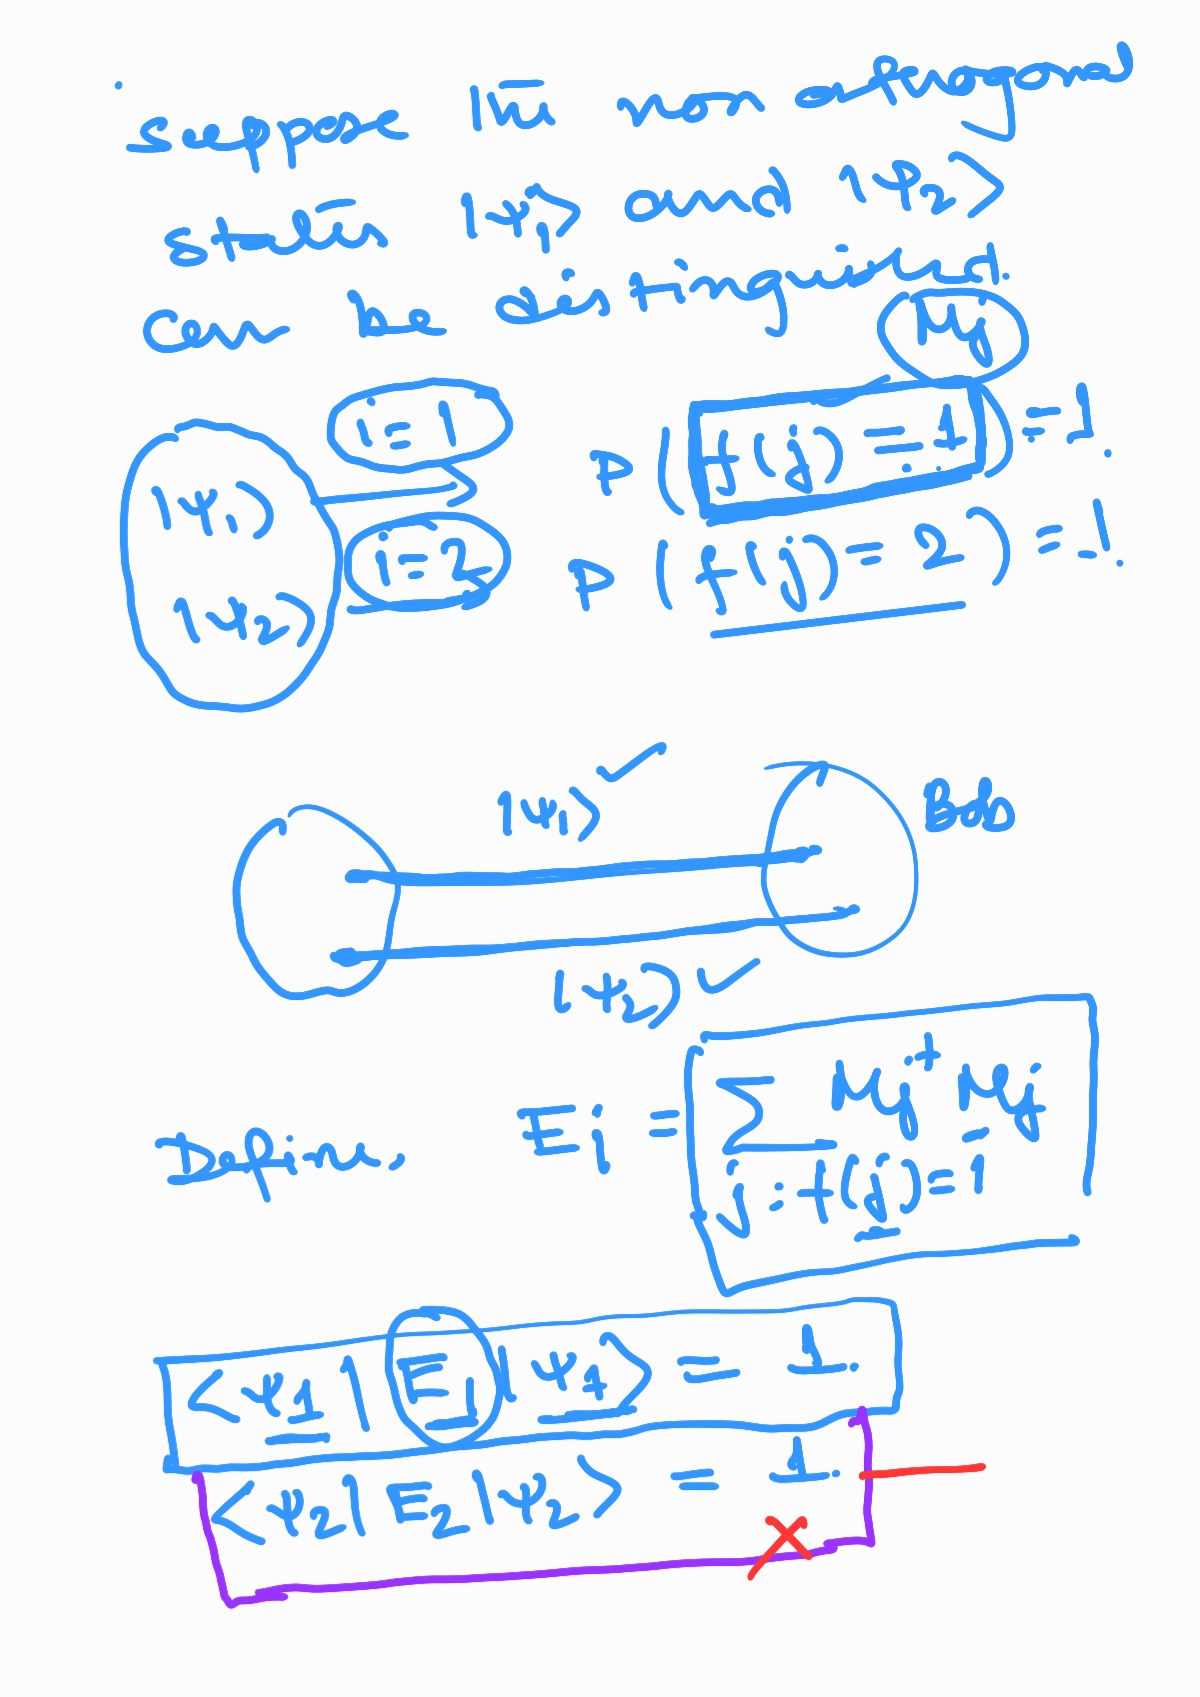 suppose the non orthogonal
states |ψ₁⟩ and |ψ₂⟩
can be distinguished.
Mj
i = 1 P(f(j) = 1) = 1.
|ψ₁⟩
i = 2 P(f(j) = 2) = 1.
|ψ₂⟩
|ψ₁⟩ ✓ Bob
|ψ₂⟩ ✓
Define, Ei = Σ Mj† Mj
j : f(j) = 1
<ψ1 | E1 | ψ1> = 1.
<ψ2 | E2 | ψ2> = 1.
×